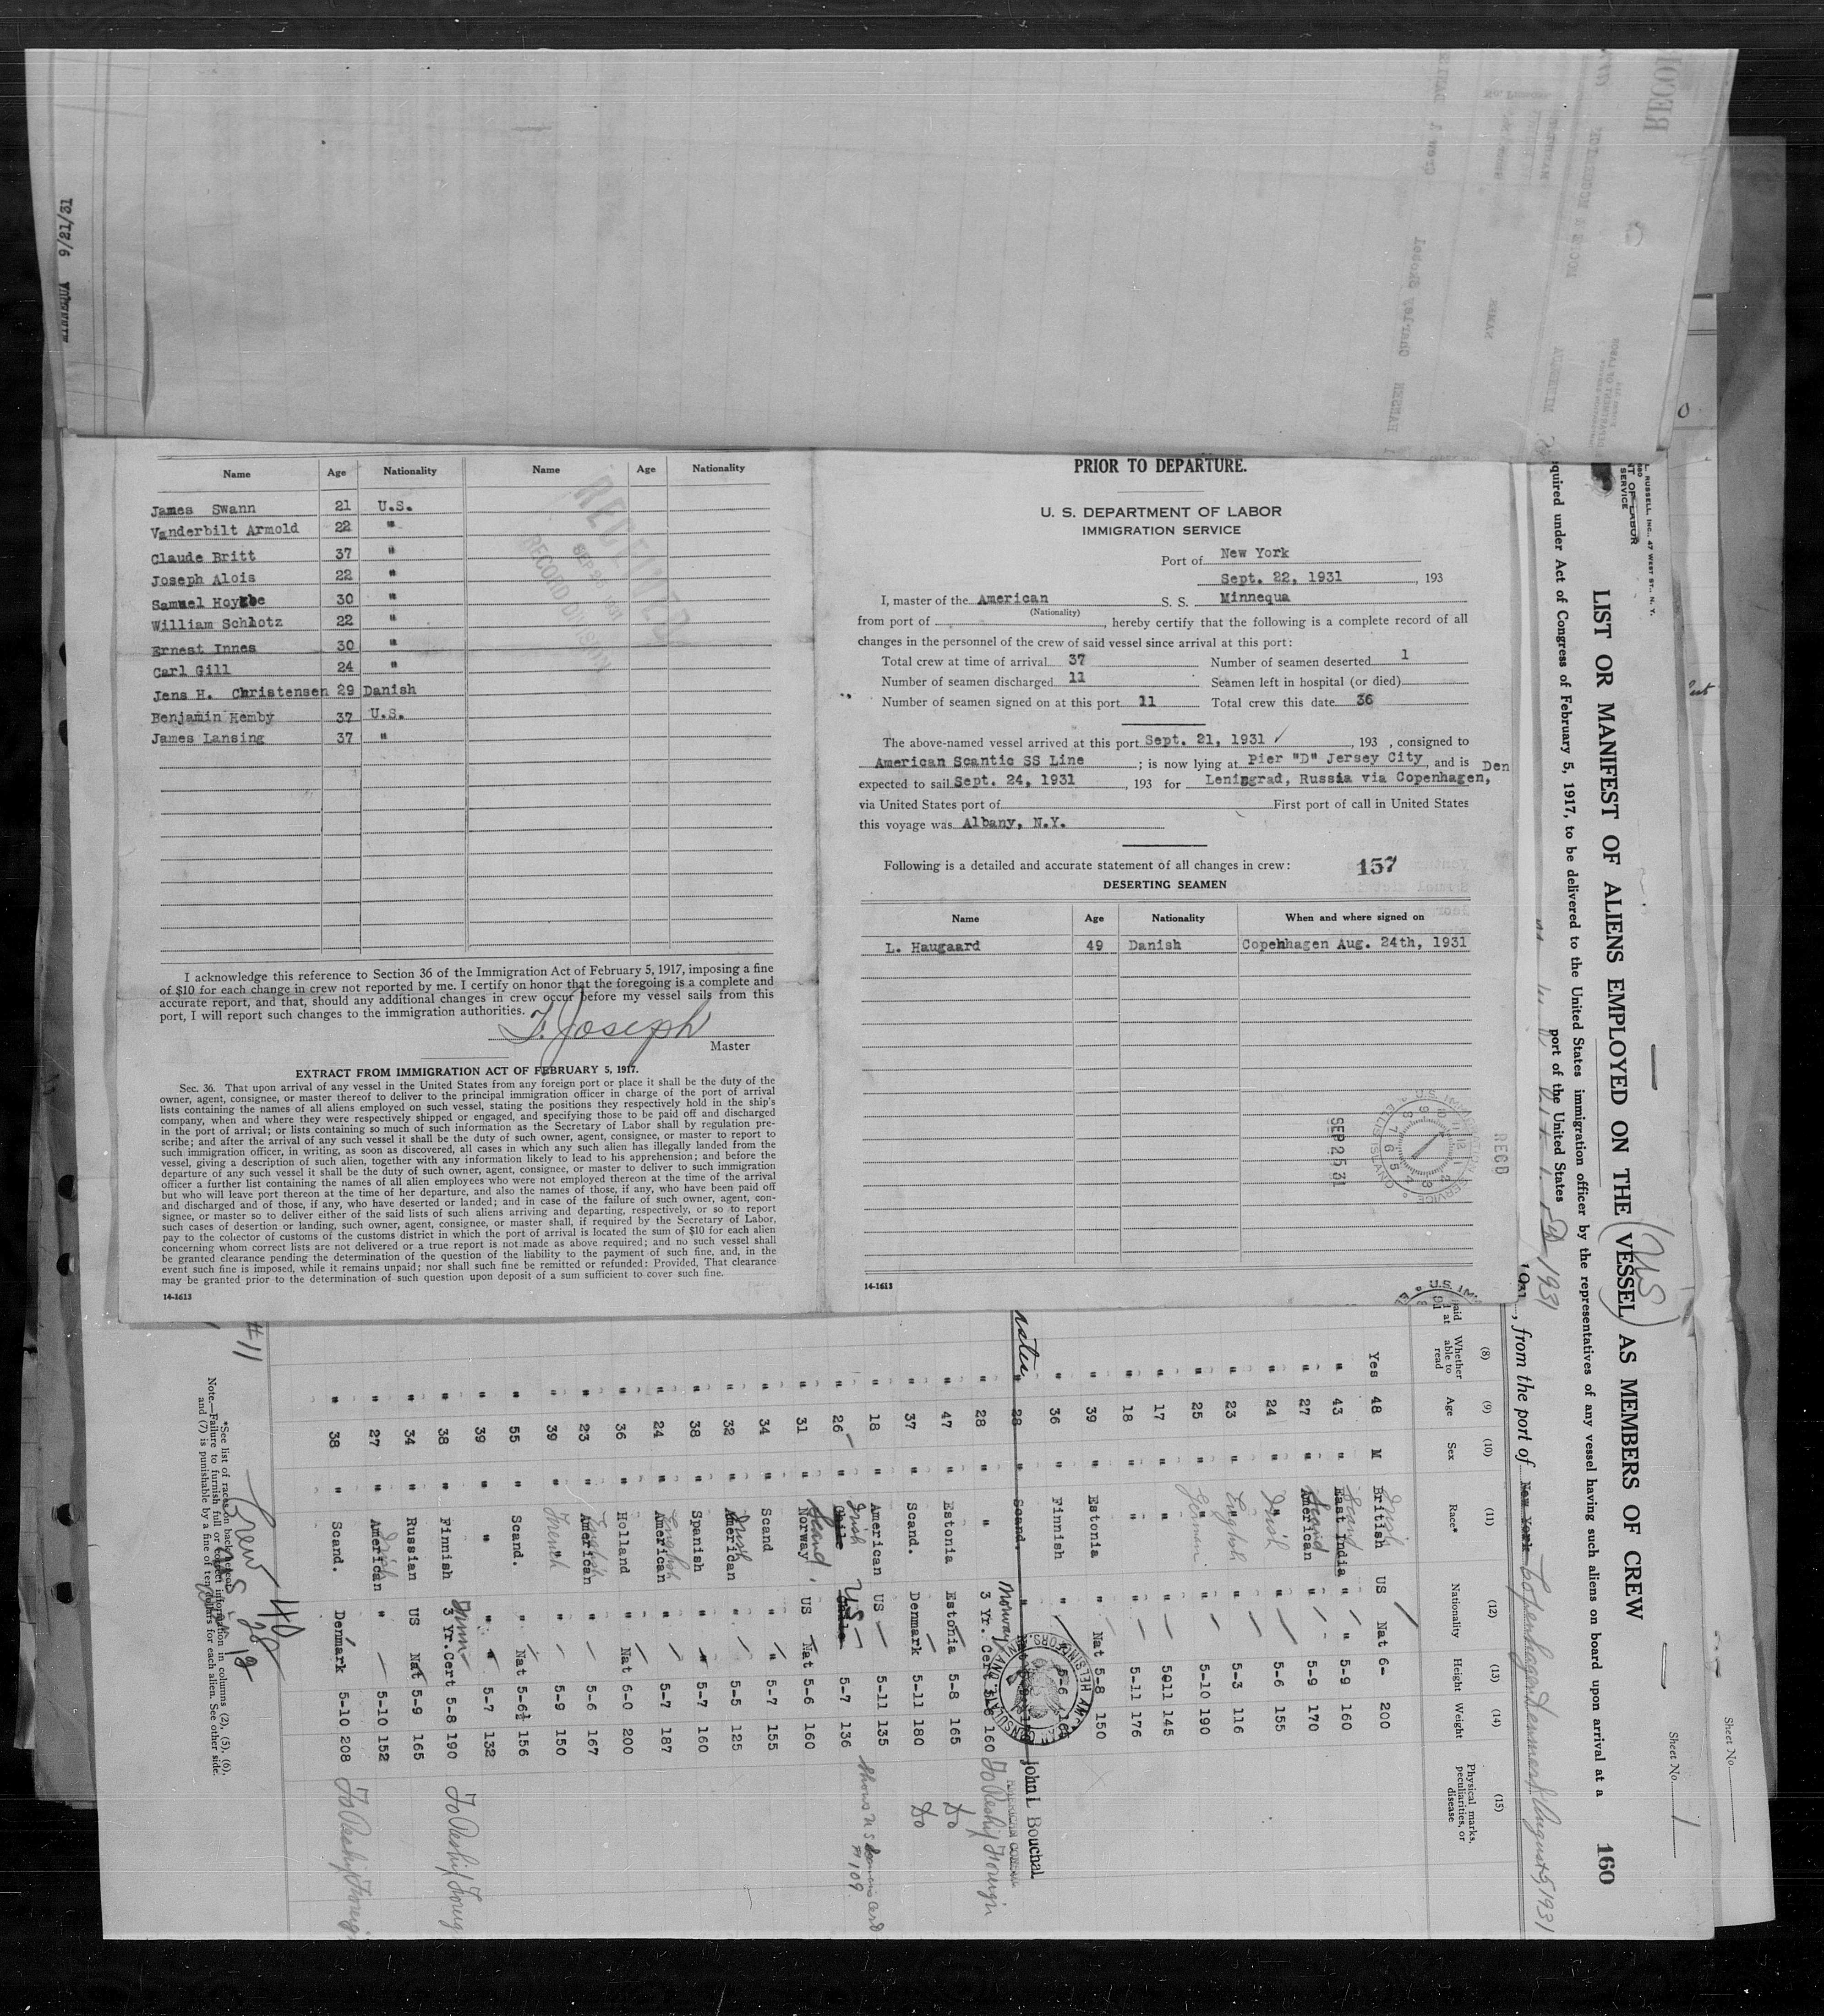 Name Age Nationality Name Age Nationality
James Swann 21 U.S.
Vanderbilt Armold 22 "
Claude Britt 37 "
Joseph Alois 22 "
Samuel 30 "
William Schhotz 22 "
Ernest Innes 30 "
Carl Gill 24 "
Jens H. Christensen 29 Danish
Benjamin Hemby 37 U.S.
James Lansing 37 "
RECEIVED
SEP 1931
RECORD DIVISION
I acknowledge this reference to Section 36 of the Immigration Act of February 5, 1917, imposing a fine
of $10 for each change in crew not reported by me. I certify on honor that the foregoing is a complete and
accurate report, and that, should any additional changes in crew occur before my vessel sails from this
port, I will report such changes to the immigration authorities.
T. Joseph
Master
EXTRACT FROM IMMIGRATION ACT OF FEBRUARY 5, 1917.
Sec. 36. That upon arrival of any vessel in the United States from any foreign port or place it shall be the duty of the
owner, agent, consignee, or master thereof to deliver to the principal immigration officer in charge of the port of arrival
lists containing the names of all aliens employed on such vessel, stating the positions they respectively hold in the ship's
company, when and where they were respectively shipped or engaged, and specifying those to be paid off and discharged
in the port of arrival; or lists containing so much of such information as the Secretary of Labor shall by regulation pre-
scribe; and after the arrival of any such vessel it shall be the duty of such owner, agent, consignee, or master to report to
such immigration officer, in writing, as soon as discovered, all cases in which any such alien has illegally landed from the
vessel, giving a description of such alien, together with any information likely to lead to his apprehension; and before the
departure of any such vessel it shall be the duty of such owner, agent, consignee, or master to deliver to such immigration
officer a further list containing the names of all alien employees who were not employed thereon at the time of the arrival
but who will leave port thereon at the time of her departure, and also the names of those, if any, who have been paid off
and discharged and of those, if any, who have deserted or landed; and in case of the failure of such owner, agent, con-
signee, or master so to deliver either of the said lists of such aliens arriving and departing, respectively, or so to report
such cases of desertion or landing, such owner, agent, consignee, or master shall, if required by the Secretary of Labor,
pay to the collector of customs of the customs district in which the port of arrival is located the sum of $10 for each alien
concerning whom correct lists are not delivered or a true report is not made as above required; and no such vessel shall
be granted clearance pending the determination of the question of the liability to the payment of such fine, and, in the
event such fine is imposed, while it remains unpaid; nor shall such fine be remitted or refunded: Provided, That clearance
may be granted prior to the determination of such question upon deposit of a sum sufficient to cover such fine.
14-1613
PRIOR TO DEPARTURE.
U. S. DEPARTMENT OF LABOR
IMMIGRATION SERVICE
Port of New York
Sept. 22, 1931, 193
I, master of the American S. S. Minnequa
(Nationality)
from port of , hereby certify that the following is a complete record of all
changes in the personnel of the crew of said vessel since arrival at this port:
Total crew at time of arrival 37 Number of seamen deserted 1
Number of seamen discharged 11 Seamen left in hospital (or died)
Number of seamen signed on at this port 11 Total crew this date 36
The above-named vessel arrived at this port Sept. 21, 1931 ✓, 193 , consigned to
American Scantic SS Line ; is now lying at Pier "D" Jersey City, and is
expected to sail Sept. 24, 1931, 193 for Leningrad, Russia via Copenhagen, Den
via United States port of First port of call in United States
this voyage was Albany, N.Y.
Following is a detailed and accurate statement of all changes in crew: 157
DESERTING SEAMEN
Name Age Nationality When and where signed on
L. Haugaard 49 Danish Copenhagen Aug. 24th, 1931
SEP 25 31
REC'D
14-1613
9/21/31
LIST OR MANIFEST OF ALIENS EMPLOYED ON THE VESSEL AS MEMBERS OF CREW
(US)
160
Sheet No. 1
Sheet No.
L. RUSSELL, INC., 47 WEST ST., N. Y.
quired under Act of Congress of February 5, 1917, to be delivered to the United States immigration officer by the representatives of any vessel having such aliens on board upon arrival at a
port of the United States
, from the port of New York Copenhagen Denmark August 5, 1931
(8) (9) (10) (11) (12) (13) (14) (15)
Whether able to read Age Sex Race* Nationality Height Weight Physical marks, peculiarities, or disease
Yes 48 M British Irish US Nat 6- 200
" 43 " East India Scand " " 5-9 160
" 27 " American Scand " 5-9 170
" 24 " " Irish " 5-6 155
" 23 " " English " 5-3 116
" 25 " " German " 5-10 190
" 17 " " " 5011 145
" 18 " " " 5-11 176
" 39 " Estonia " Nat 5-8 150
" 36 " Finnish " 5-6
" 28 " Scand. "
John L. Bouchal
" 28 " " Norway 3 Yr. Cert 5-8 160 To Reship Foreign
" 47 " Estonia Estonia 5-8 165 Do
" 37 " Scand. Denmark 5-11 180 Do
" 18 " American US 5-11 135
" 26 " Chile Irish Chile U.S. 5-7 136 Shows US Seamens Card
" 31 " Norway Scand US Nat 5-6 160
" 34 " Scand " " 5-7 155
" 32 " American Irish " 5-5 125
" 38 " Spanish " " 5-7 160
" 24 " American English " 5-7 187
" 36 " Holland " Nat 6-0 200
" 23 " American English " 5-6 167
" 39 " " French " 5-9 150
" 55 " Scand. " Nat 5-6½ 156
" 39 " " " " 5-7 132
" 38 " Finnish Finn 3 Yr. Cert 5-8 190 To Reship Foreig
" 34 " Russian US Nat 5-9 165
" 27 " American Irish " 5-10 152
" 38 " Scand. Denmark 5-10 208 To Reship Foreig
#11
Crew 40
*See list of races on back hereof.
Note.—Failure to furnish full or correct information in columns (2), (5), (6),
and (7) is punishable by a fine of ten dollars for each alien. See other side.